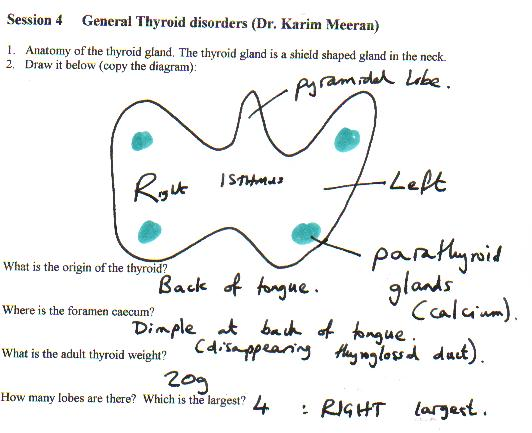 Session 4 General Thyroid disorders (Dr. Karim Meeran)
1. Anatomy of the thyroid gland. The thyroid gland is a shield shaped gland in the neck.
2. Draw it below (copy the diagram):
pyramidal Lobe.
Right
ISTHMUS
Left
parathyroid
glands
(calcium).
What is the origin of the thyroid?
Back of tongue.
Where is the foramen caecum?
Dimple at back of tongue.
(disappearing thyroglossal duct).
What is the adult thyroid weight?
20g
How many lobes are there? Which is the largest? 4 : RIGHT largest.